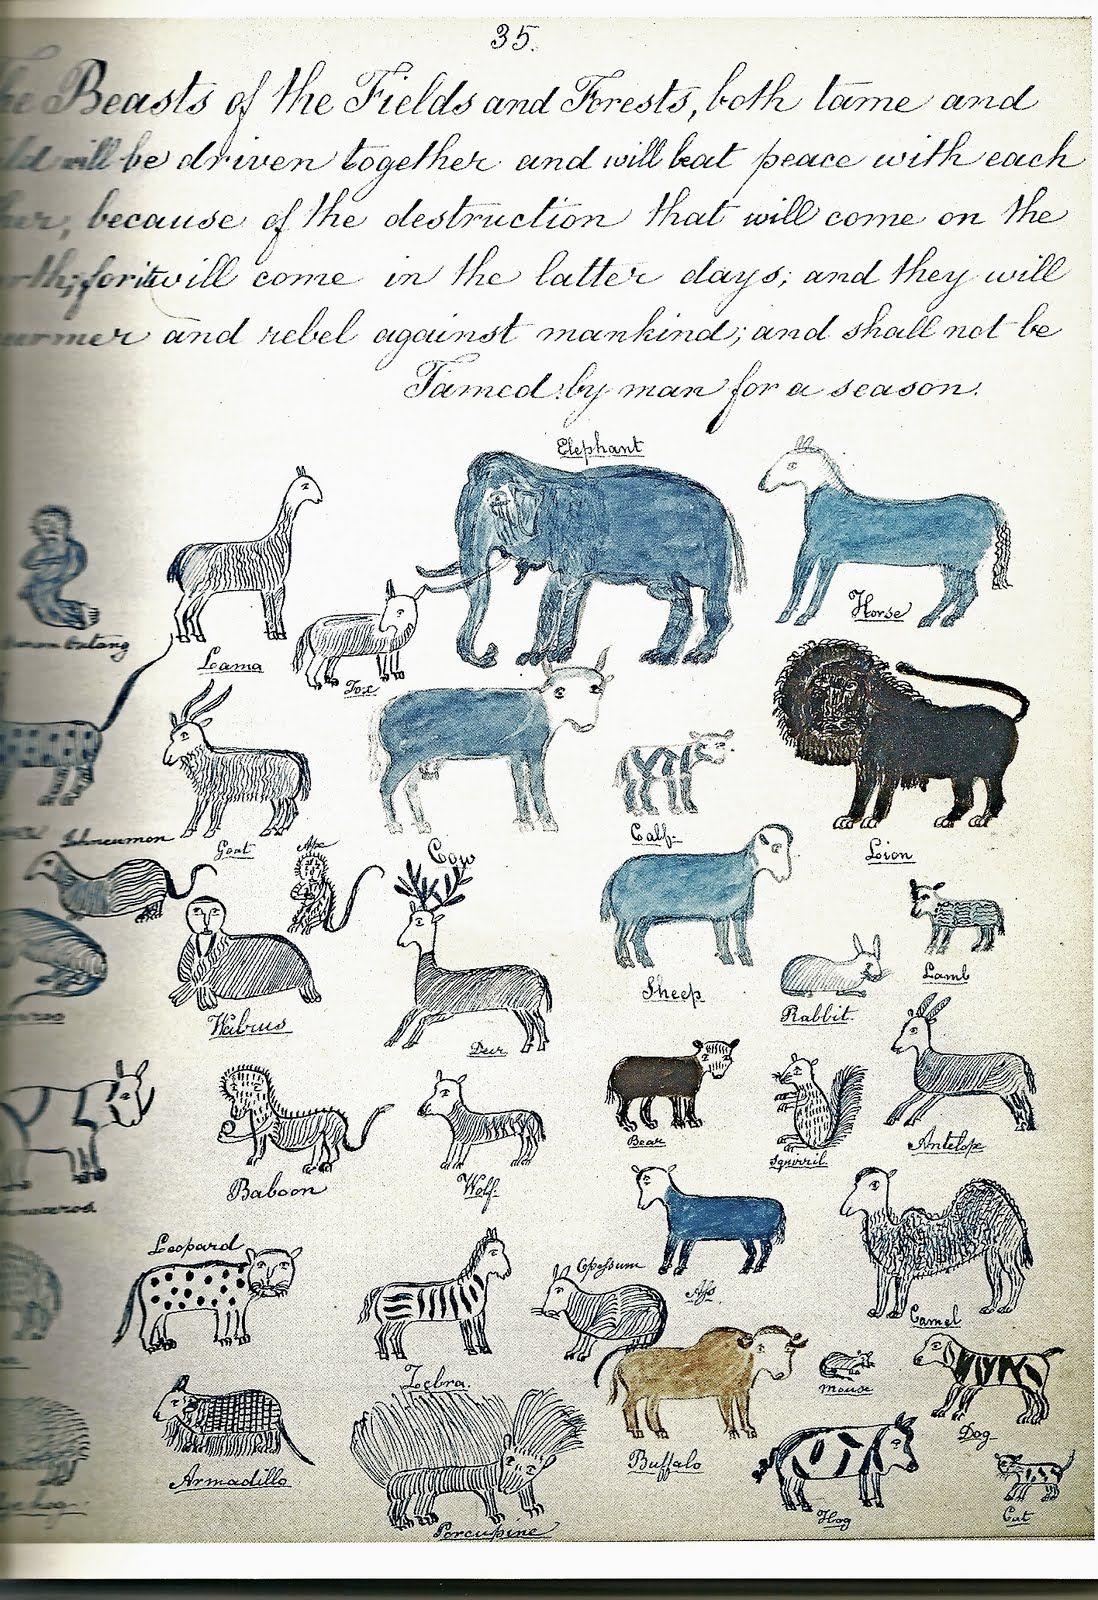 35.
he Beasts of the Fields and Forests, both tame and
ild will be driven together and will beat peace with each
her, because of the destruction that will come on the
rth; for it will come in the latter days; and they will
urmer and rebel against mankind; and shall not be
Tamed by man for a season.
Elephant
Horse
Outang
Lama
Fox
Ichneumon
Goat
Ape
Cow
Calf
Lion
Walrus
Deer
Sheep
Rabbit
Lamb
Bear
Squirril
Antelope
Baboon
Wolf
Leopard
Opossum
Ass
Camel
Zebra
Mouse
Dog
Armadillo
Porcupine
Buffalo
Hog
Cat